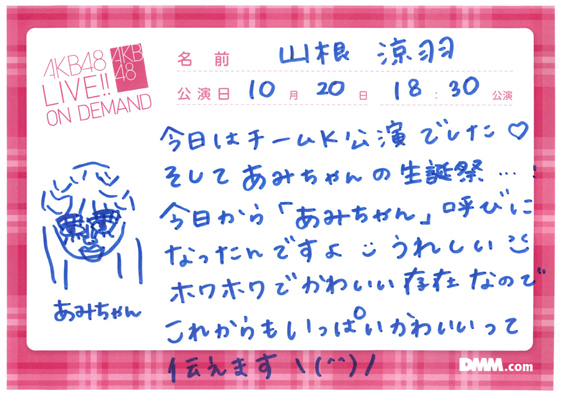 AKB48
LIVE!!
ON DEMAND
AKB
48
名前 山根 涼羽
公演日 10月 20日 18:30公演
今日はチームK公演でした♡
そしてあみちゃんの生誕祭…!
今日から「あみちゃん」呼びに
なったんですよ うれしい
ホワホワでかわいい存在なので
これからもいっぱいかわいいって
伝えます \(^^)/
あみちゃん
DMM.com